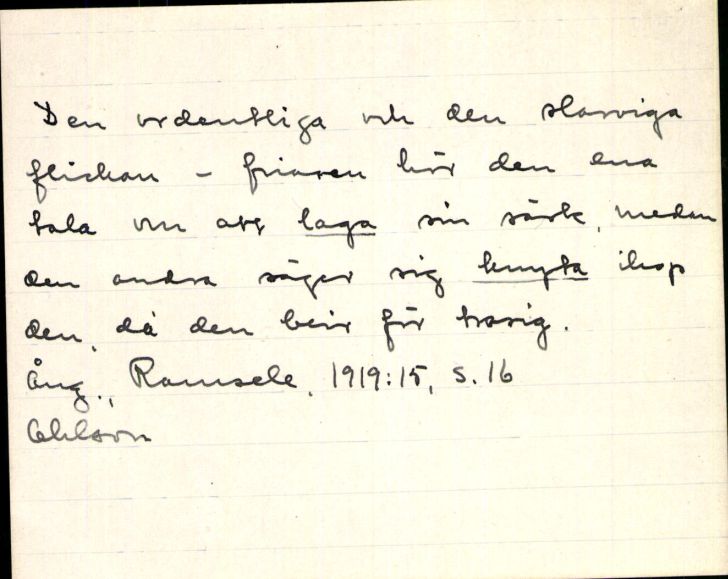 Den ordentliga och den slarviga
flickan – friaren hör den ena
tala om att laga sin särk, medan
den andra säger sig knyta ihop
den, då den blir för trasig.
Ång., Ramsele, 1919:15, s. 16